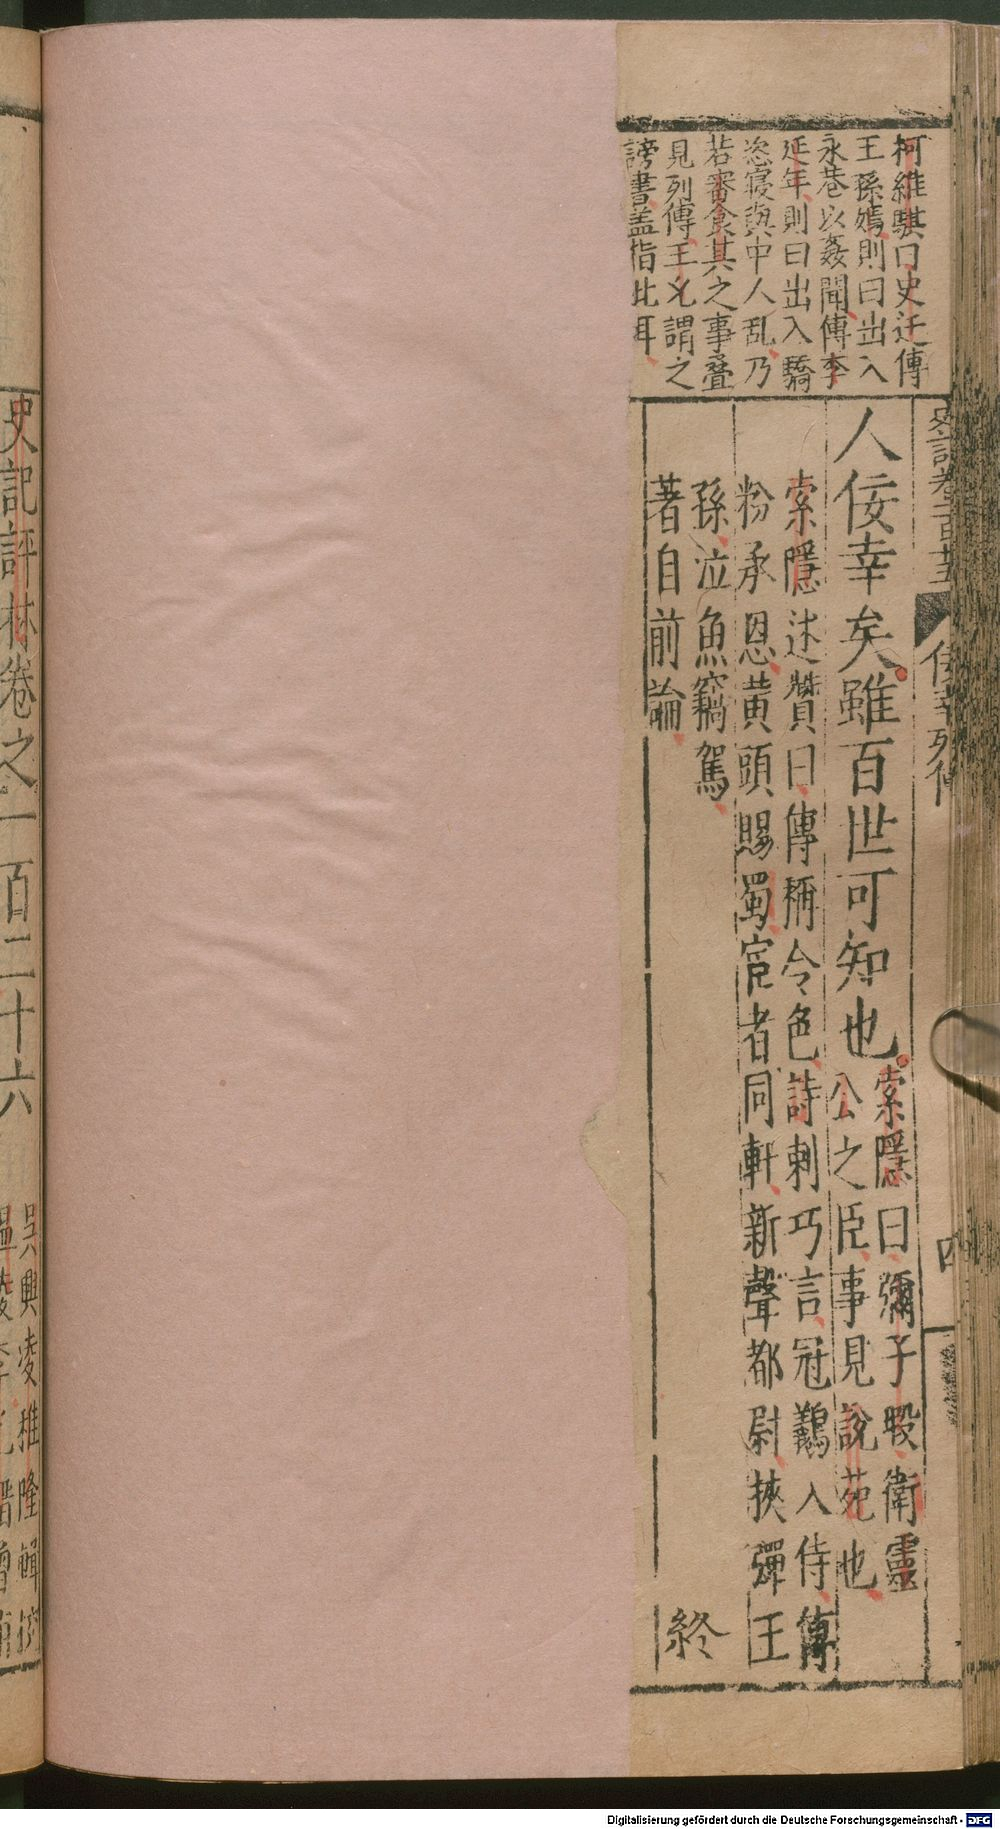 史記卷一百廿五 佞幸列傳 四
柯維騏曰史迁傳
王孫嫣則曰出入
永巷以姦聞傳李
延年則曰出入驕
恣寖與中人乱乃
若審食其之事叠
見列傳王允謂之
謗書盖指此耳
人佞幸矣雖百世可知也
索隱曰彌子叚衛靈
公之臣事見說苑也
索隱述贊曰傳稱令色詩刺巧言冠鷬入侍傳
粉承恩黄頭賜蜀宦者同軒新聲都尉挾彈王
孫泣魚竊駕
著自前論
終
史記評林卷之一百二十六
吳興凌稚隆輯校
溫陵李光縉增補
Digitalisierung gefördert durch die Deutsche Forschungsgemeinschaft - DFG